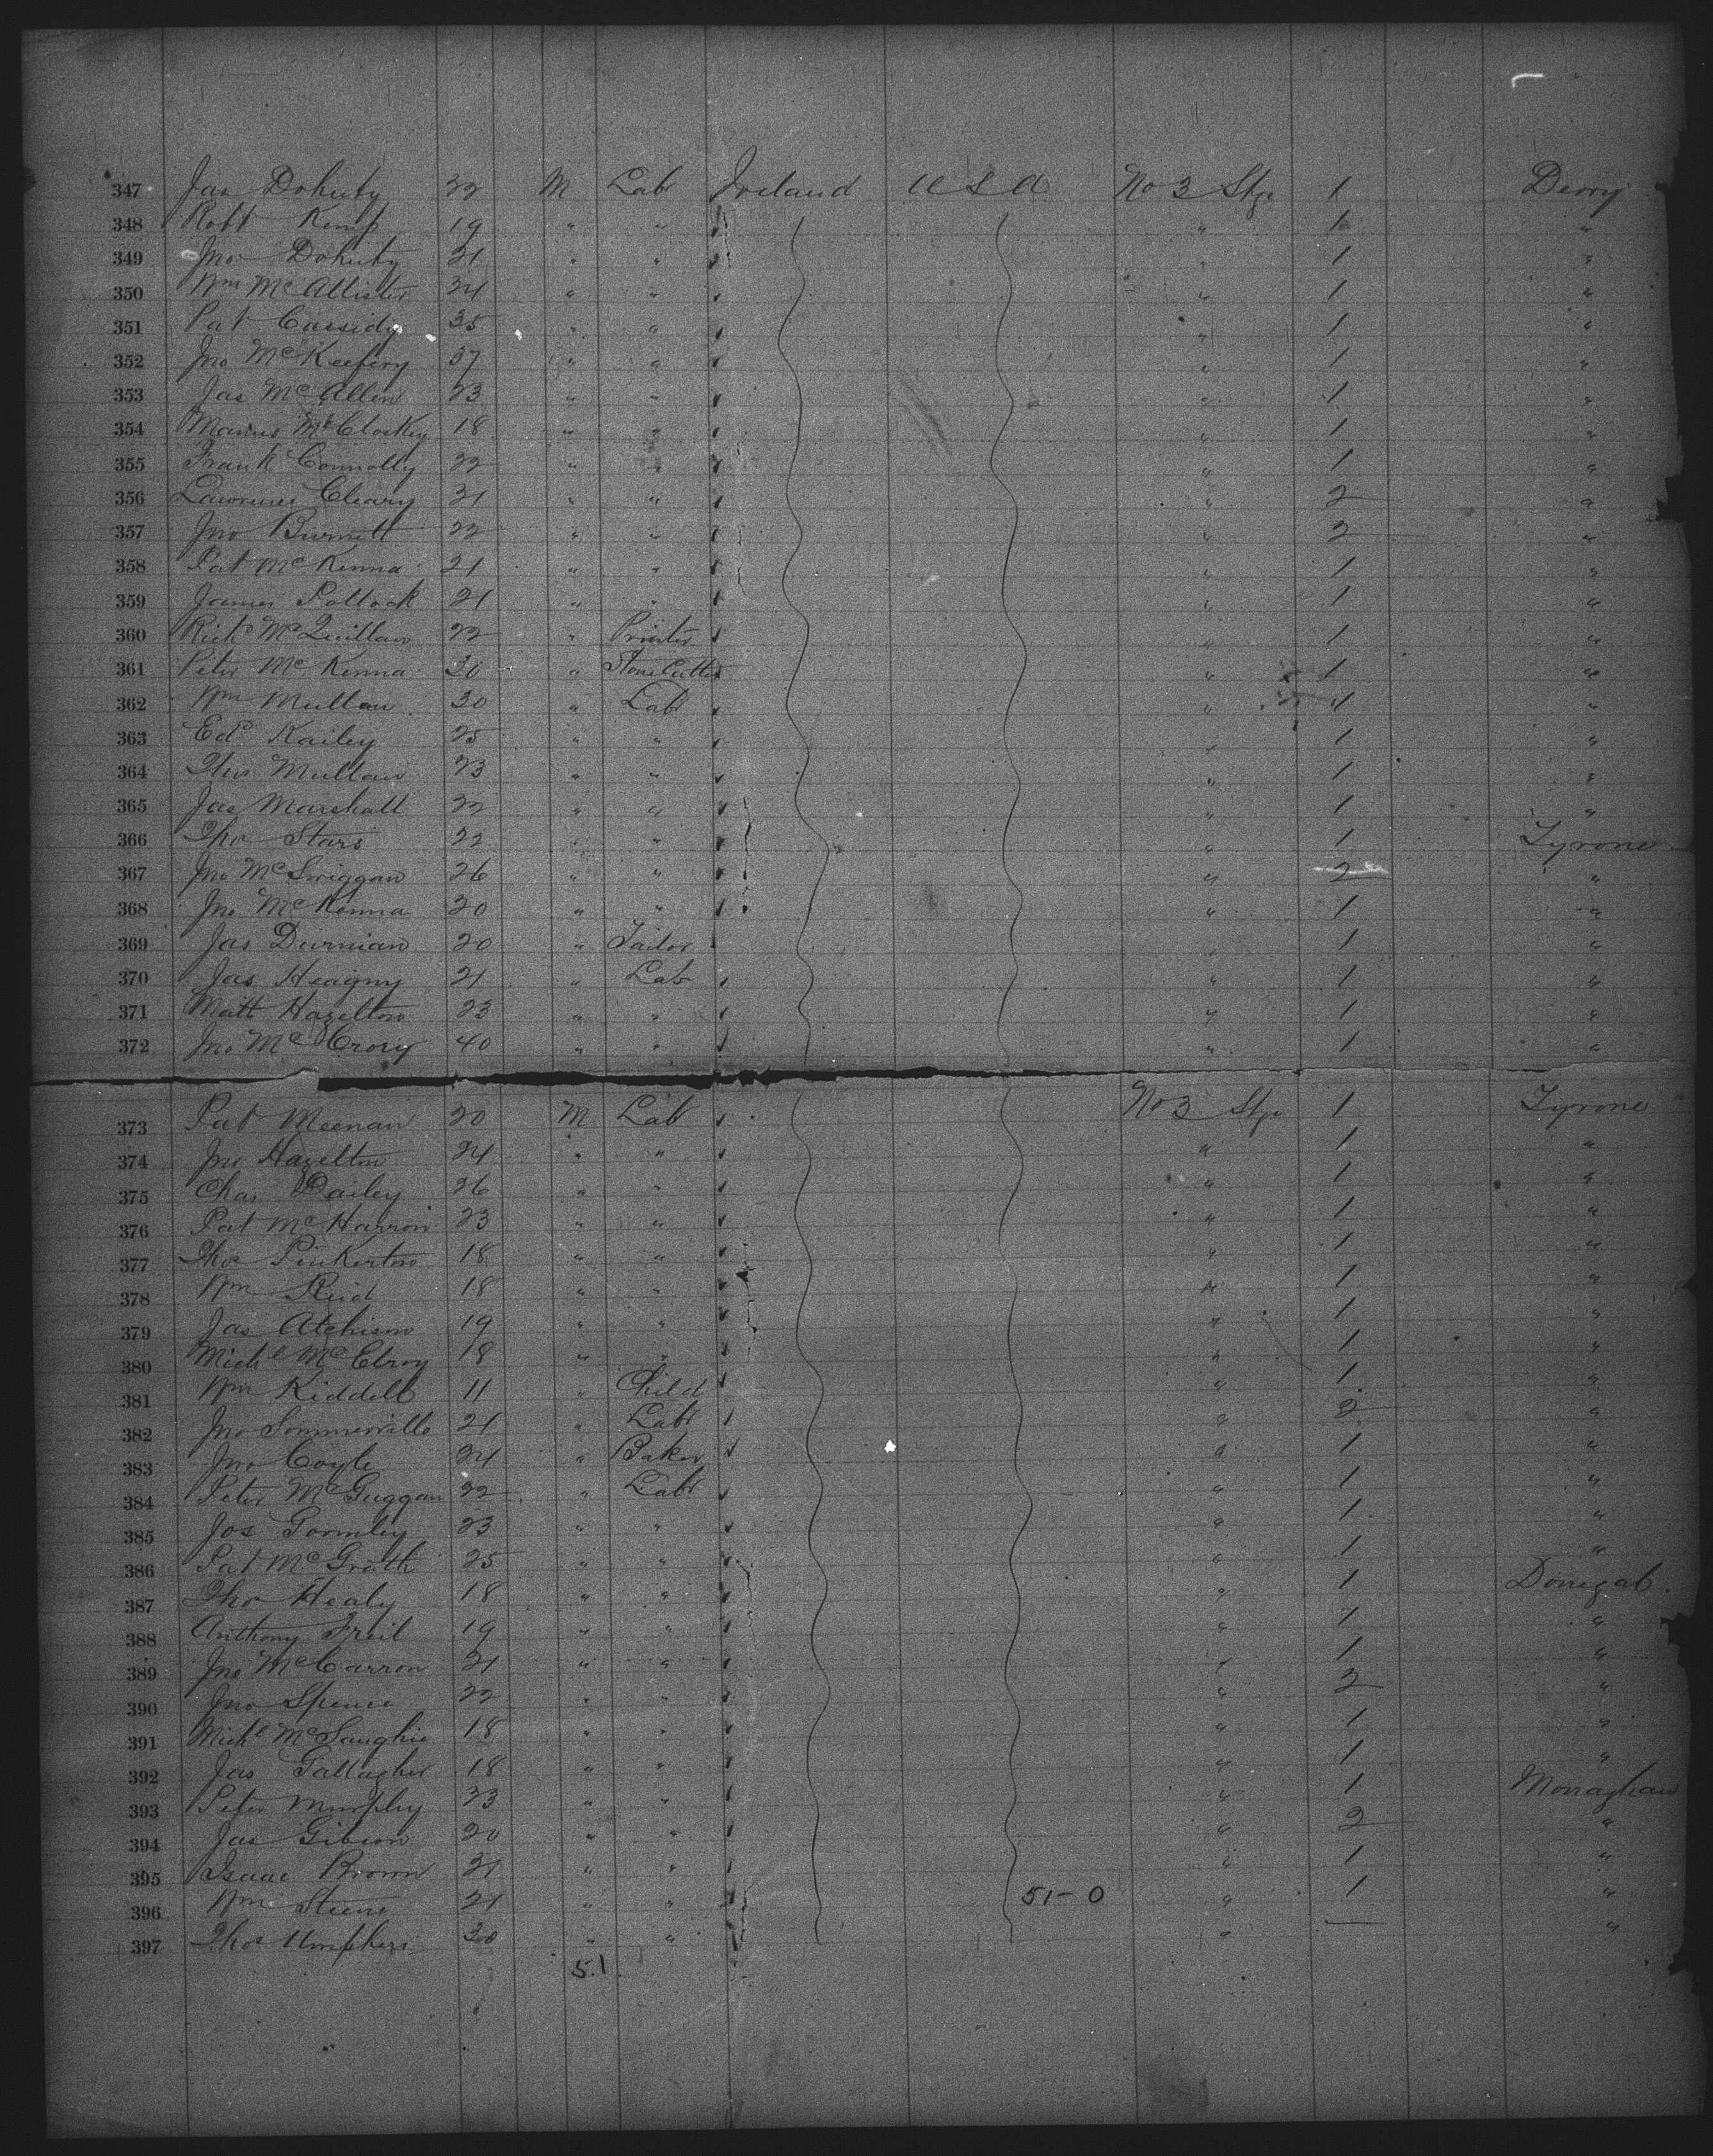 347 Jas Doherty 22 M Labr Ireland U S A No 3 Stge 1 Derry
348 Robt Kemp 19 " " " 1 "
349 Jno Doherty 21 " " " 1 "
350 Wm McAllister 24 " " " 1 "
351 Pat Cassidy 35 " " " 1 "
352 Jno McKeefery 37 " " " 1 "
353 Jas McAllen 23 " " " 1 "
354 Manus McCloskey 18 " " " 1 "
355 Frank Connolly 22 " " " 1 "
356 Lawrence Cleary 21 " " " 2 "
357 Jno Burnett 22 " " " 2 "
358 Pat McKenna 21 " " " 1 "
359 James Pollock 21 " " " 1 "
360 Richd McQuillan 22 " Printer " 1 "
361 Peter McKenna 30 " Stone Cutter " 1 "
362 Wm Mullan 30 " Labr " 1 "
363 Edd Kailey 25 " " " 1 "
364 Thos Mullan 23 " " " 1 "
365 Jas Marshall 22 " " " 1 "
366 Thos Stars 22 " " " 1 Tyrone
367 Jno McSwiggan 26 " " " 2 "
368 Jno McKenna 20 " " " 1 "
369 Jas Durnian 20 " Tailor " 1 "
370 Jas Heagny 21 " Labr " 1 "
371 Matt Hazelton 23 " " " 1 "
372 Jno McCrory 40 " " " 1 "
373 Pat Meenan 20 M Labr No 3 Stge 1 Tyrone
374 Jno Hazelton 24 " " " 1 "
375 Chas Dailey 26 " " " 1 "
376 Pat McHarron 23 " " " 1 "
377 Thos Pinkerton 18 " " " 1 "
378 Wm Reid 18 " " " 1 "
379 Jas Atchison 19 " " " 1 "
380 Michl McElroy 18 " " " 1 "
381 Wm Kiddell 11 " Child " 1 "
382 Jno Sommerville 21 " Labr " 2 "
383 Jno Coyle 24 " Baker " 1 "
384 Peter McGuggan 22 " Labr " 1 "
385 Jos Gormley 23 " " " 1 "
386 Pat McGrath 25 " " " 1 "
387 Thos Healy 18 " " " 1 Donegal
388 Anthony Freil 19 " " " 1 "
389 Jno McCarron 21 " " " 1 "
390 Jno Spence 22 " " " 2 "
391 Michl McLaughie 18 " " " 1 "
392 Jas Gallagher 18 " " " 1 "
393 Peter Murphy 23 " " " 1 Monaghan
394 Jas Gibson 20 " " " 2 "
395 Isaac Brown 21 " " " 1 "
396 Wm Steene 21 " " 51-0 " 1 "
397 Thos Umphers 30 " " " — "
51